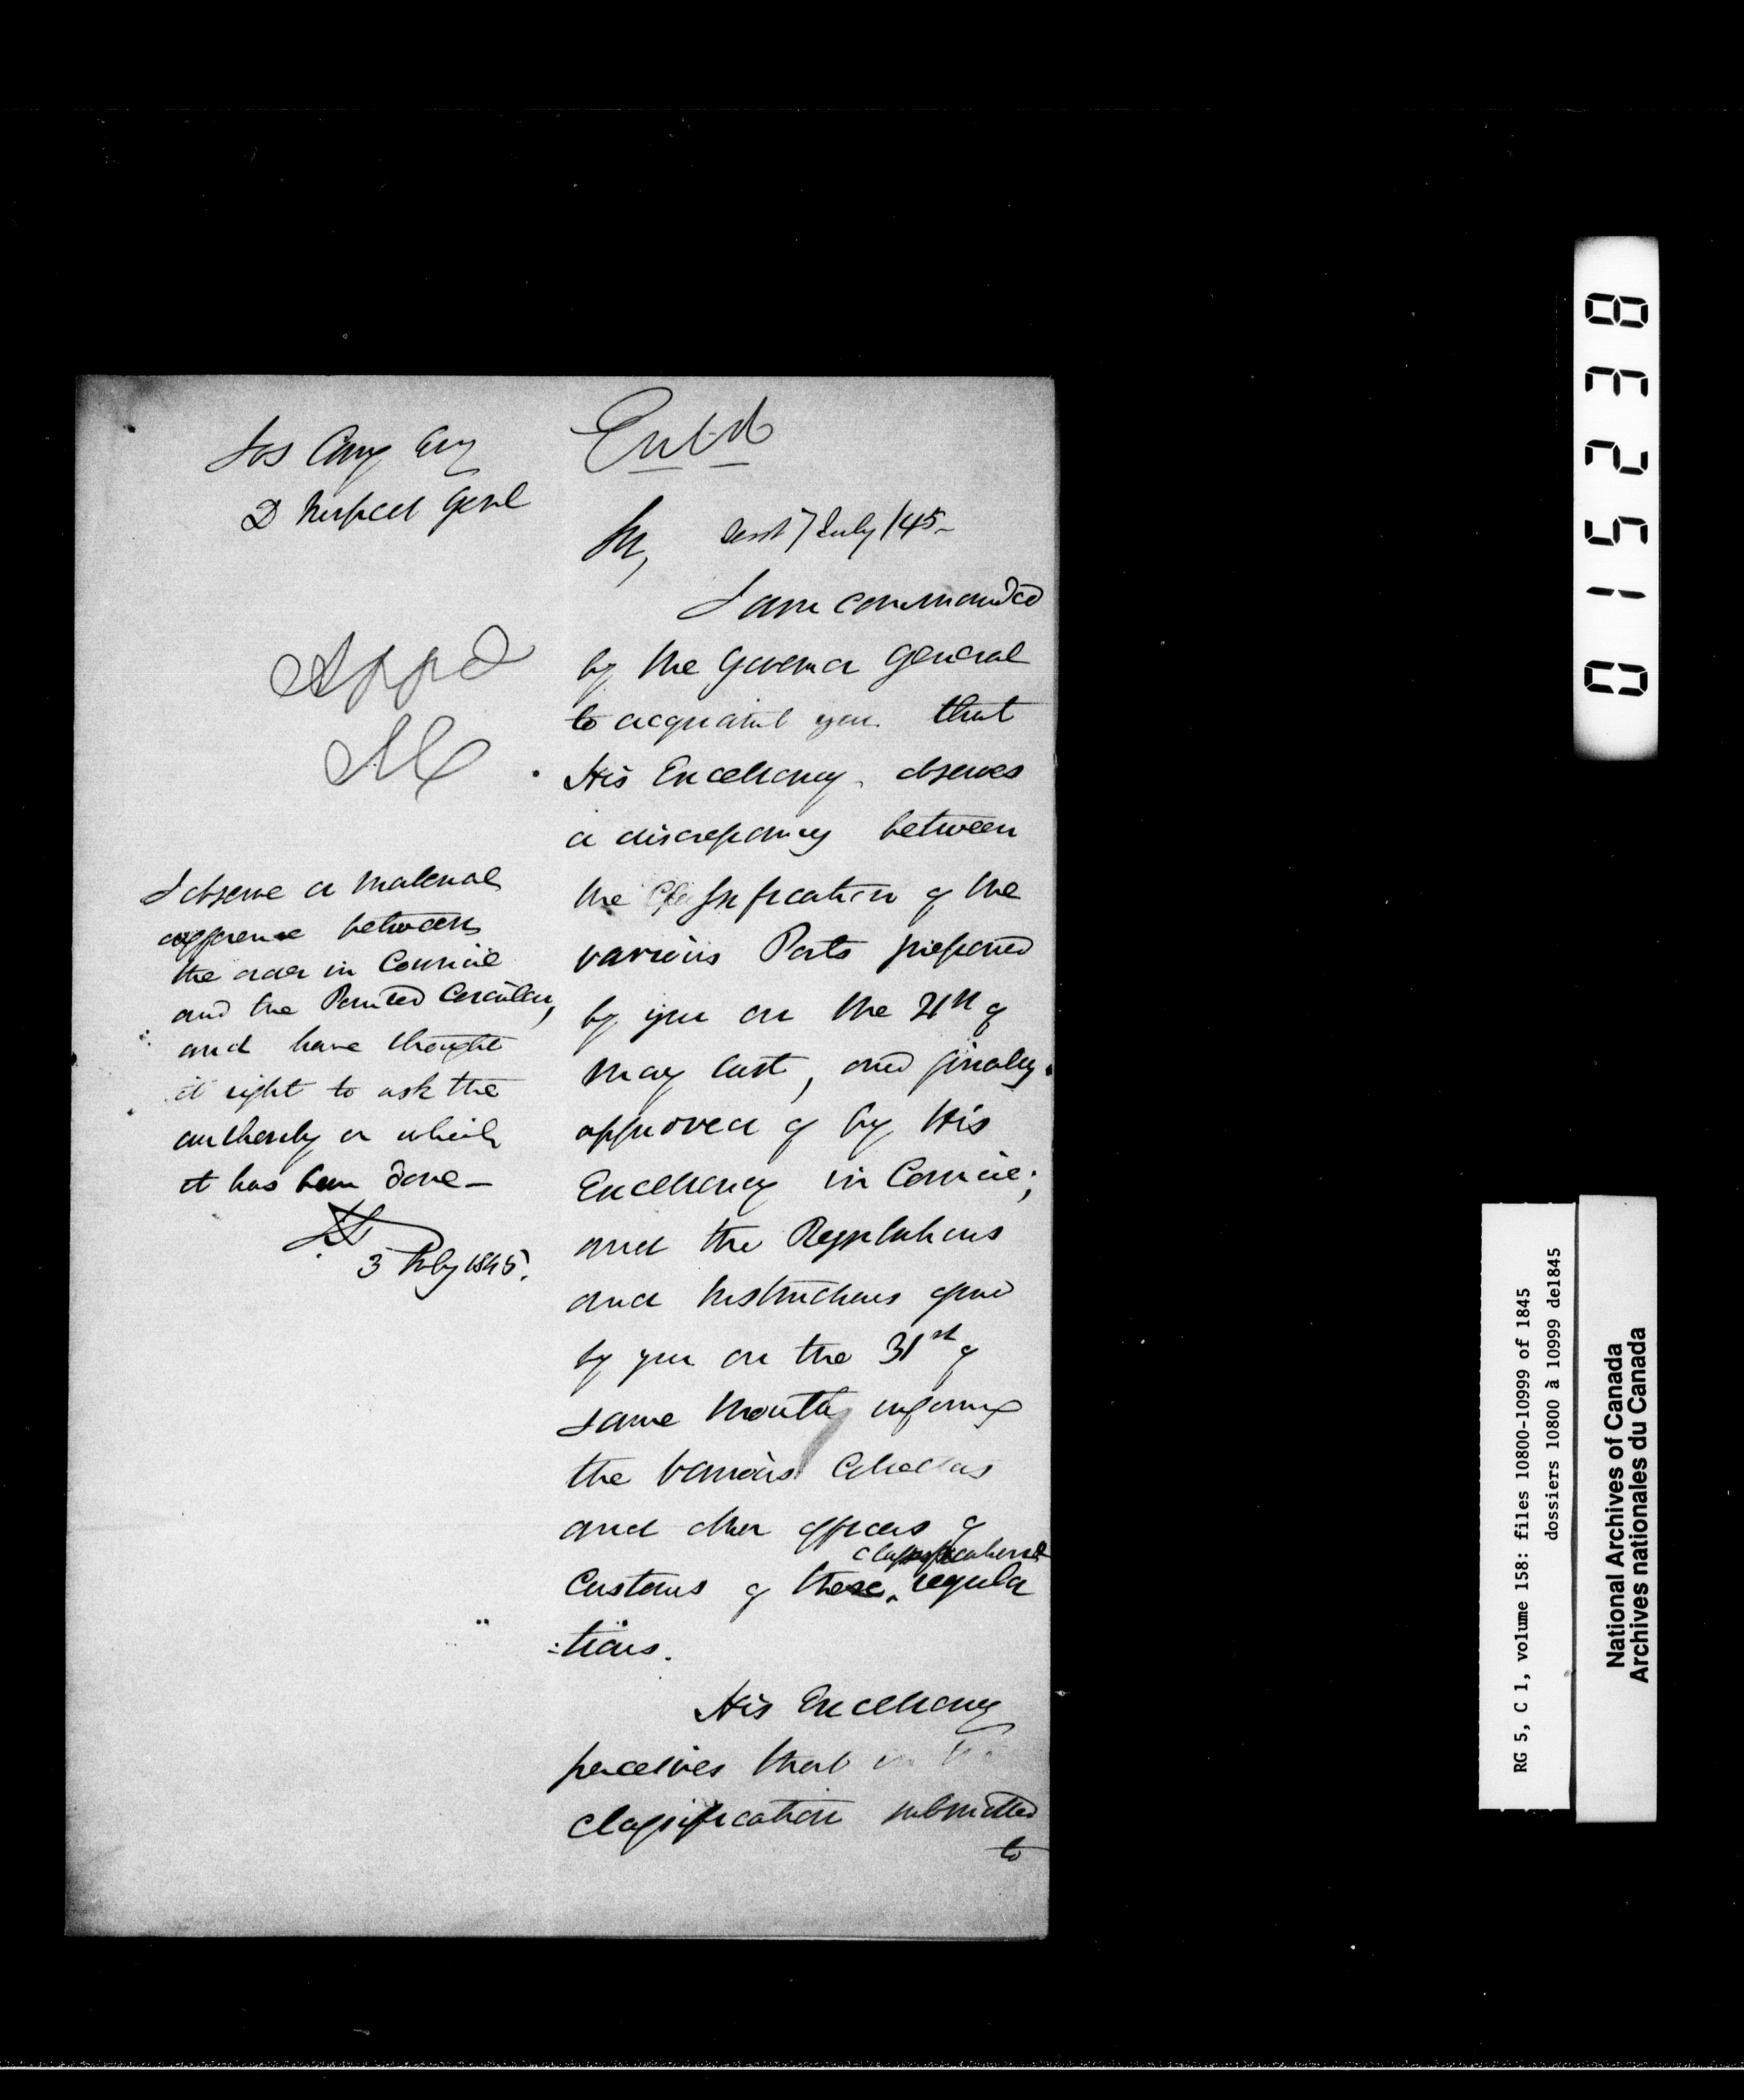 Jos Cary Esq
D Inspect Genl
Entd
Sir, Sent 7 July /45
I am commanded
by the Governor General
to acquaint you that
His Excellency observes
a discrepancy between
the Classification of the
various Ports prepared
by you on the 21st of
May last, and finally
approved of by His
Excellency in Council;
and the Regulations
and Instructions
by you on the 31st of
same Month informing
the various Collectors
and other officers of
Customs of these classification & regula
:tions.
His Excellency
perceives that in the
classification submitted
to
Appd
I observe a material
difference between
the order in Council
and the Printed Circular,
and have thought
it right to ask the
authority on which
it has been done—
3 July 1845.
015238
RG 5, C 1, volume 158: files 10800-10999 of 1845
dossiers 10800 à 10999 de1845
National Archives of Canada
Archives nationales du Canada